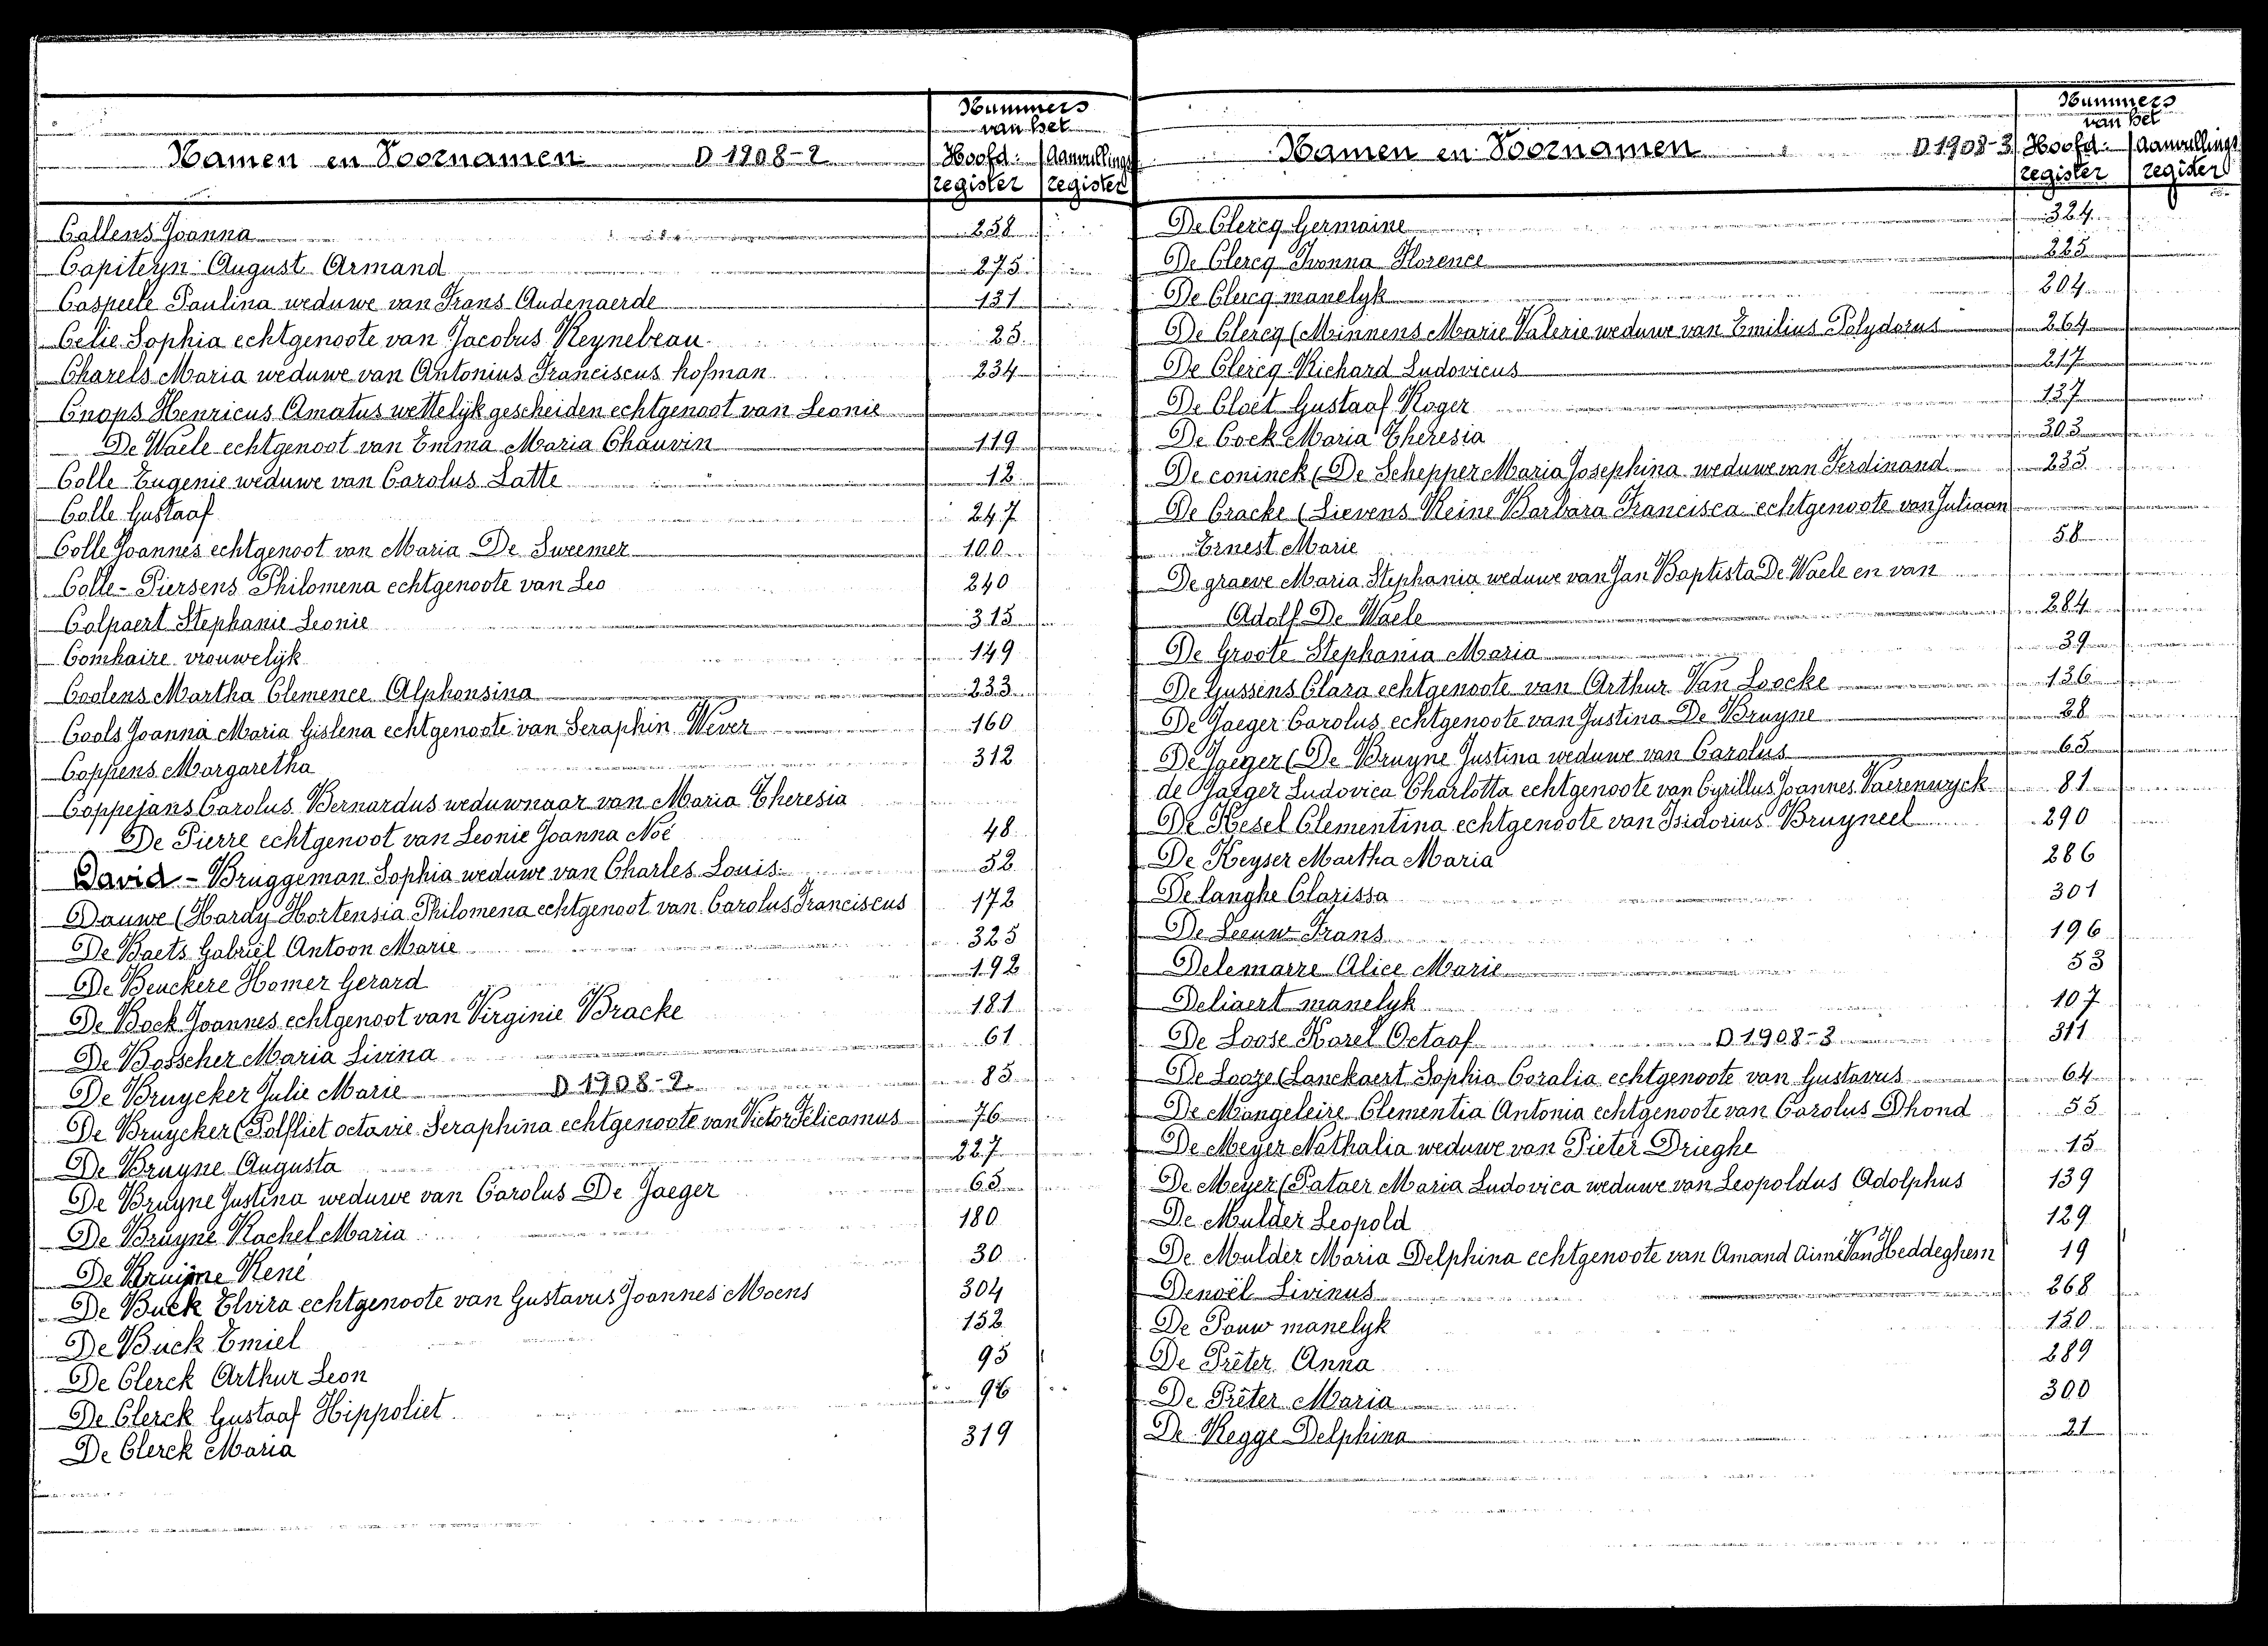 Namen en Voornamen D 1908-2 Nummers van het Hoofd: register Aanvullings register
Callens Joanna 258
Capiteyn August Armand 275
Caspeele Paulina weduwe van Frans Audenaerde 131
Celie Sophia echtgenoote van Jacobus Reynebeau 25
Charels Maria weduwe van Antonius Franciscus hofman 234
Cnops Henricus Amatus wettelijk gescheiden echtgenoot van Leonie
De Waele echtgenoot van Emma Maria Chauvin 119
Colle Eugenie weduwe van Carolus Latte 12
Colle Gustaaf 247
Colle Joannes echtgenoot van Maria De Sweemer 100
Colle-Piersens Philomena echtgenoote van Leo 240
Colpaert Stephanie Leonie 315
Comhaire vrouwelijk 149
Coolens Martha Clemence Alphonsina 233
Cools Joanna Maria Gislena echtgenoote van Seraphin Wever 160
Coppens Margaretha 312
Coppejans Carolus Bernardus weduwnaar van Maria Theresia
De Pierre echtgenoot van Leonie Joanna Noé 48
David - Bruggeman Sophia weduwe van Charles Louis 52
Dauwe (Hardy Hortensia Philomena echtgenoot van Carolus Franciscus 172
De Baets Gabriël Antoon Marie 325
De Beuckere Homer Gerard 192
De Bock Joannes echtgenoot van Virginie Bracke 181
De Bosscher Maria Livina 61
De Bruycker Julie Marie D 1908-2 85
De Bruycker (Polfliet octavie Seraphina echtgenoote van Victor Félicamus 76
De Bruyne Augusta 227
De Bruyne Justina weduwe van Carolus De Jaeger 65
De Bruyne Rachel Maria 180
De Bruijne René 30
De Buck Elvira echtgenoote van Gustavus Joannes Moens 304
De Buck Emiel 152
De Clerck Arthur Leon 95
De Clerck Gustaaf Hippoliet 96
De Clerck Maria 319
Namen en Voornamen D 1908-3 Nummers van het Hoofd: register Aanvullings register
De Clercq Germaine 324
De Clercq Ivonna Florence 225
De Clercq manelyk 204
De Clercq (Minnens Marie Valerie weduwe van Emilius Polydorus 264
De Clercq Richard Ludovicus 217
De Cloet Gustaaf Roger 137
De Cock Maria Theresia 303
De coninck (De Schepper Maria Josephina weduwe van Ferdinand 235
De Cracke (Lievens Reine Barbara Francisca echtgenoote van Juliaan
Ernest Marie 58
De graeve Maria Stephania weduwe van Jan Baptista De Waele en van
Adolf De Waele 284
De Groote Stephania Maria 39
De Gussens Clara echtgenoote van Arthur Van Loocke 136
De Jaeger Carolus echtgenoote van Justina De Bruyne 28
De Jaeger (De Bruyne Justina weduwe van Carolus 65
de Jaeger Ludovica Charlotta echtgenoote van Cyrillus Joannes Vaerenwyck 81
De Kesel Clementina echtgenoote van Isidorius Bruyneel 290
De Keyser Martha Maria 286
De langhe Clarissa 301
De Leeuw Frans 196
Delemarre Alice Marie 53
Deliaert manelyk 107
De Loose Karel Octaaf D 1908-3 311
De Looze (Lanckaert Sophia Coralia echtgenoote van Gustavus 64
De Mangeleire Clementia Antonia echtgenoote van Carolus Dhond 55
De Meyer Nathalia weduwe van Pieter Drieghe 15
De Meyer (Pataer Maria Ludovica weduwe van Leopoldus Adolphus 139
De Mulder Leopold 129
De Mulder Maria Delphina echtgenoote van Amand Aimé Van Heddeghem 19
Denoël Livinus 268
De Pauw manelyk 150
De Prêter Anna 289
De Prêter Maria 300
De Regge Delphina 21